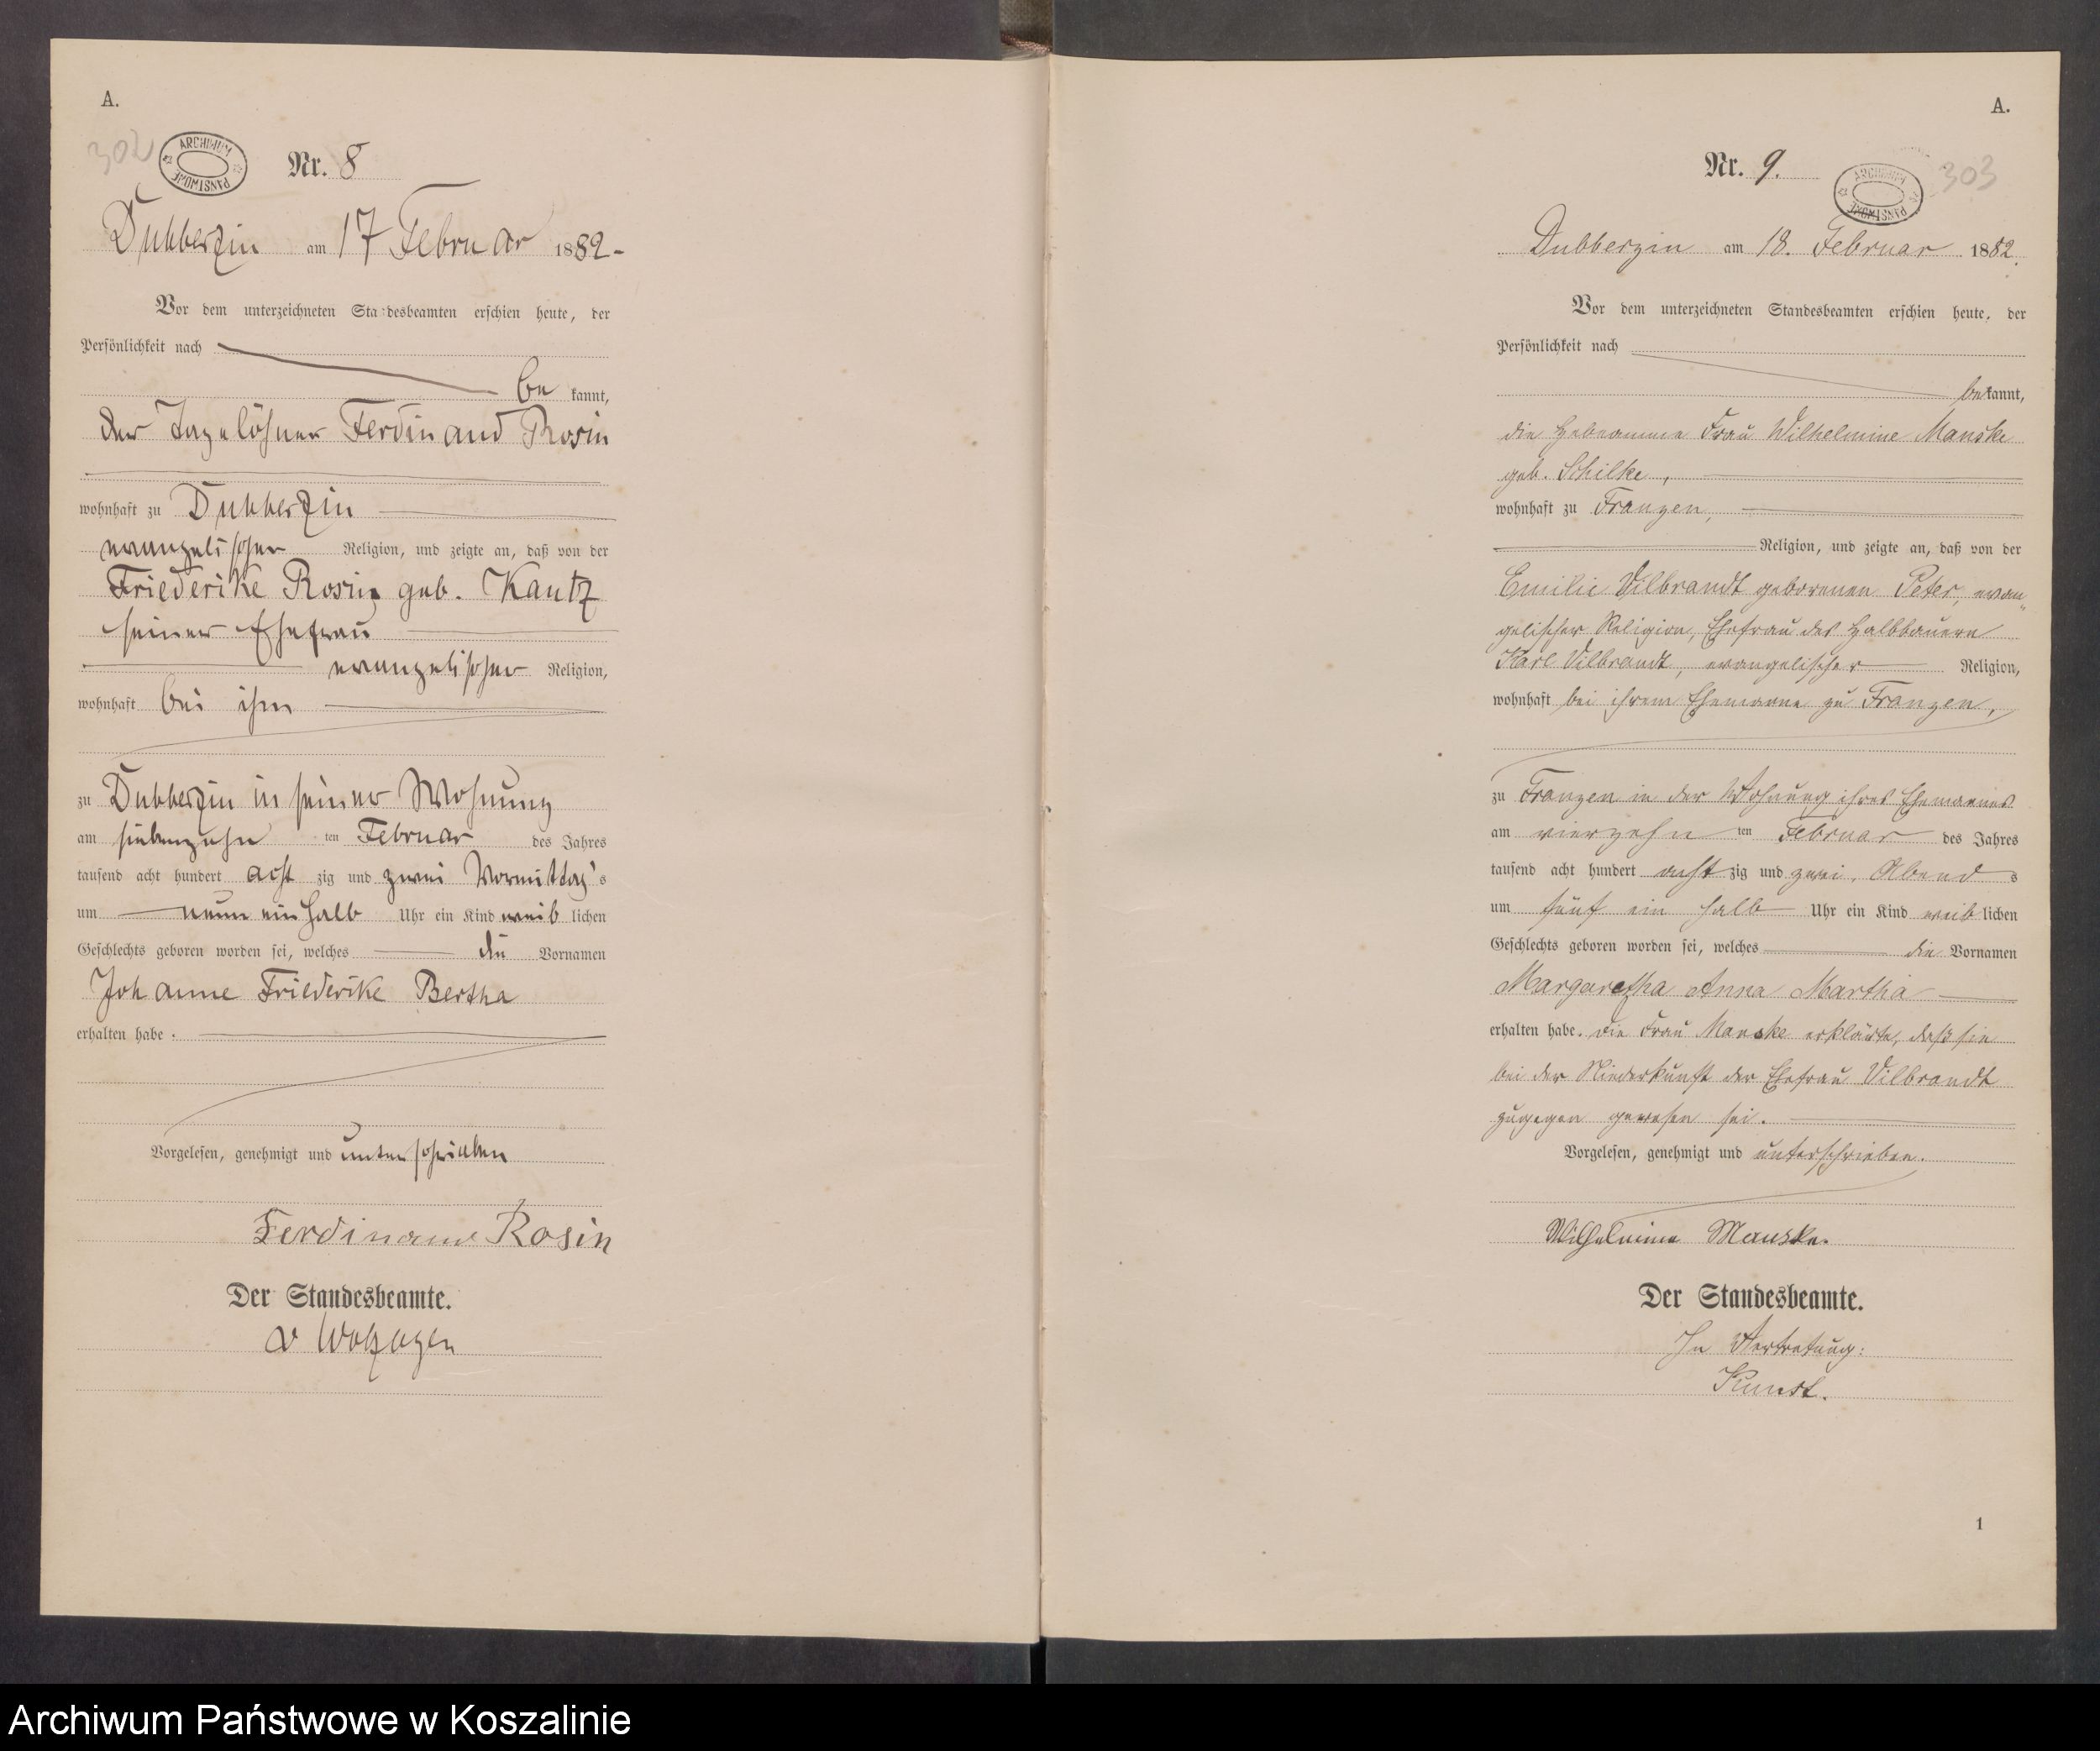 A.
302
ARCHIWUM PAŃSTWOWE
Nr. 8
Dubberzin am 17 Februar 1882-
Vor dem unterzeichneten Standesbeamten erschien heute, der
Persönlichkeit nach
be kannt,
der Tagelöhner Ferdinand Rosin
wohnhaft zu Dubberzin
evangelischer Religion, und zeigte an, daß von der
Friederike Rosin geb. Kautz
seiner Ehefrau
evangelischer Religion,
wohnhaft bei ihm
zu Dubberzin in seiner Wohnung
am siebenzehn ten Februar des Jahres
tausend acht hundert acht zig und zwei Vormittag's
um neun ein halb Uhr ein Kind weib lichen
Geschlechts geboren worden sei, welches die Vornamen
Johanne Friederike Bertha
erhalten habe.
Vorgelesen, genehmigt und unterschrieben
Ferdinand Rosin
Der Standesbeamte.
v Wolzogen
A.
Nr. 9.
ARCHIWUM PAŃSTWOWE
303
Dubberzin am 18. Februar 1882.
Vor dem unterzeichneten Standesbeamten erschien heute, der
Persönlichkeit nach
be kannt,
die Hebeamme Frau Wilhelmine Manske
geb. Schilke,
wohnhaft zu Franzen,
Religion, und zeigte an, daß von der
Emilie Vilbrandt geborenen Peter, evan„
gelischer Religion, Ehefrau des Halbbauern
Karl Vilbrandt, evangelischer Religion,
wohnhaft bei ihrem Ehemanne zu Franzen,
zu Franzen in der Wohnung ihres Ehemannes
am vierzehn ten Februar des Jahres
tausend acht hundert acht zig und zwei, Abend s
um fünf ein halb Uhr ein Kind weib lichen
Geschlechts geboren worden sei, welches die Vornamen
Margaretha Anna Martha
erhalten habe. Die Frau Manske erklärte, daß sie
bei der Niederkunft der Ehefrau Vilbrandt
zugegen gewesen sei.
Vorgelesen, genehmigt und unterschrieben.
Wilhelmine Manske.
Der Standesbeamte.
In Vertretung:
Kunst.
1
Archiwum Państwowe w Koszalinie